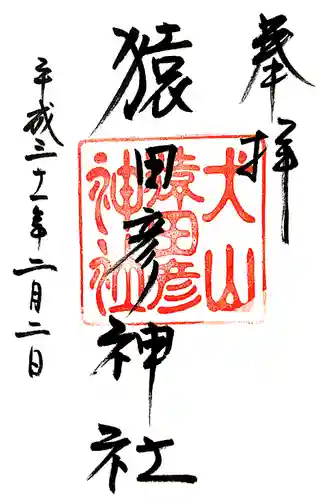 奉拝
猿田彦神社
平成三十一年二月二日
犬山
猿田彦
神社